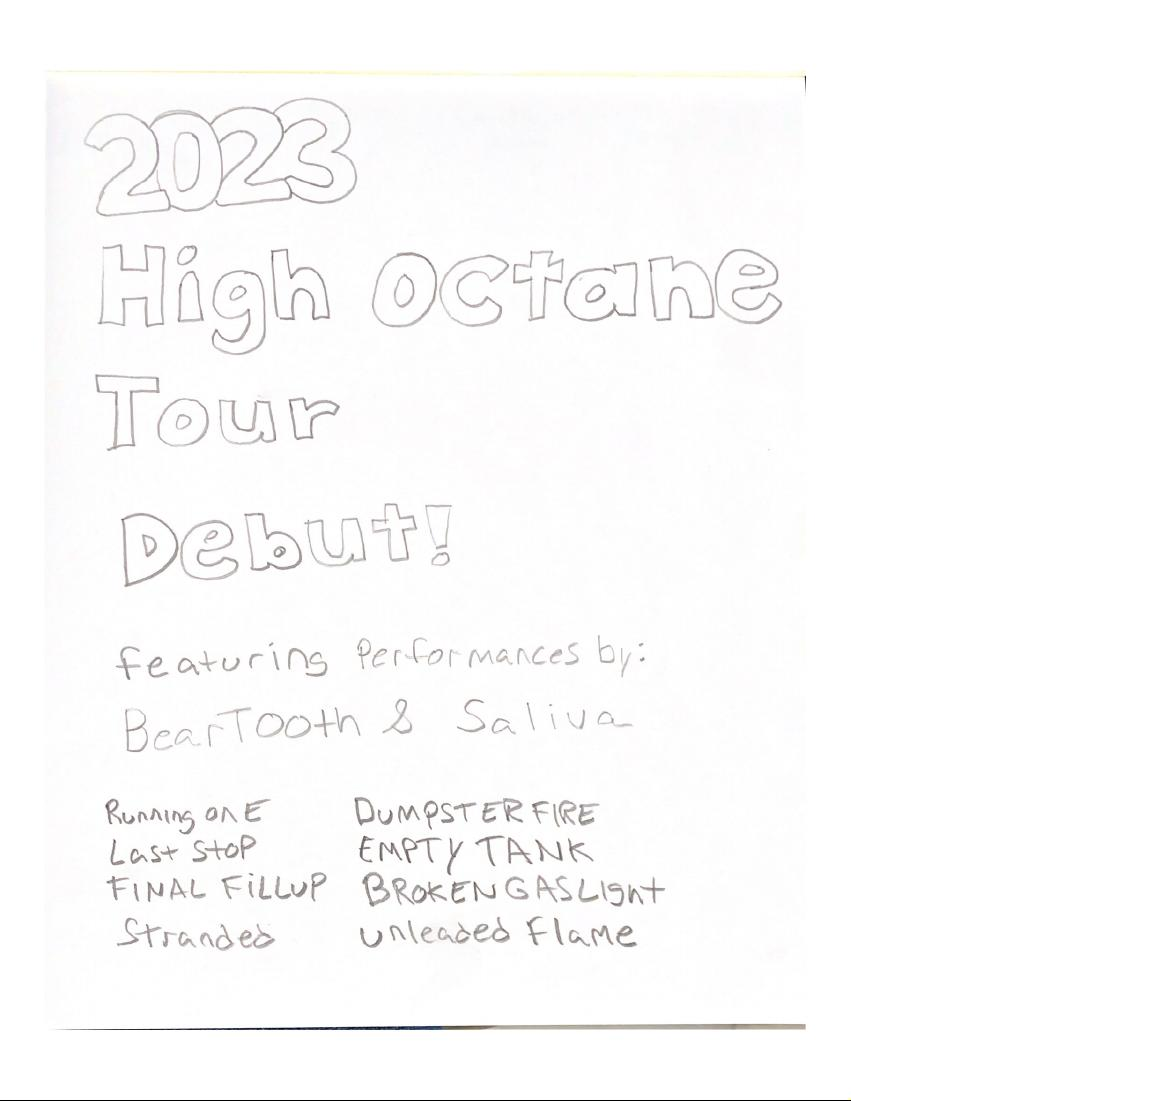 2023
High Octane
Tour
Debut!
featuring Performances by:
BearTooth & Saliva
Running on E
Last Stop
FINAL FiLLUP
Stranded
DUMPSTER FIRE
EMPTY TANK
BROKEN GASLight
unleaded flame